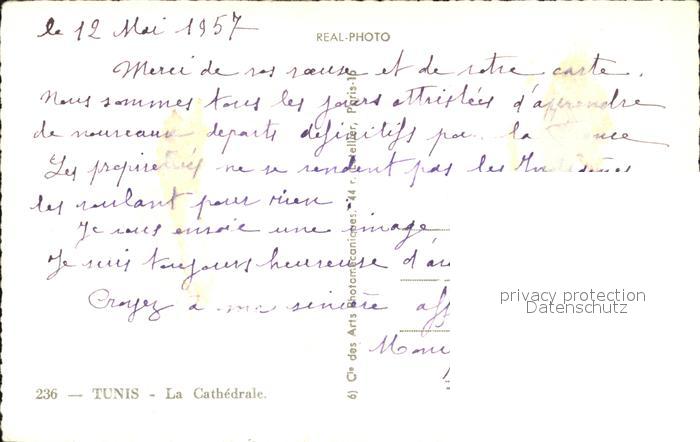 le 12 Mai 1957
REAL-PHOTO
Merci de vos vœux et de votre carte.
Nous sommes tous les jours attristées d'apprendre
de nouveaux départs définitifs pour la France
Les propriétés ne se vendent pas les Indigènes
les voulant pour rien.
Je vous envoie une image
Je suis toujours heureuse d'a
Croyez à ma sincère aff
privacy protection
Datenschutz
236 — TUNIS - La Cathédrale.
6) Cie des Arts Photomécaniques, 44 r. Letellier, Paris-15